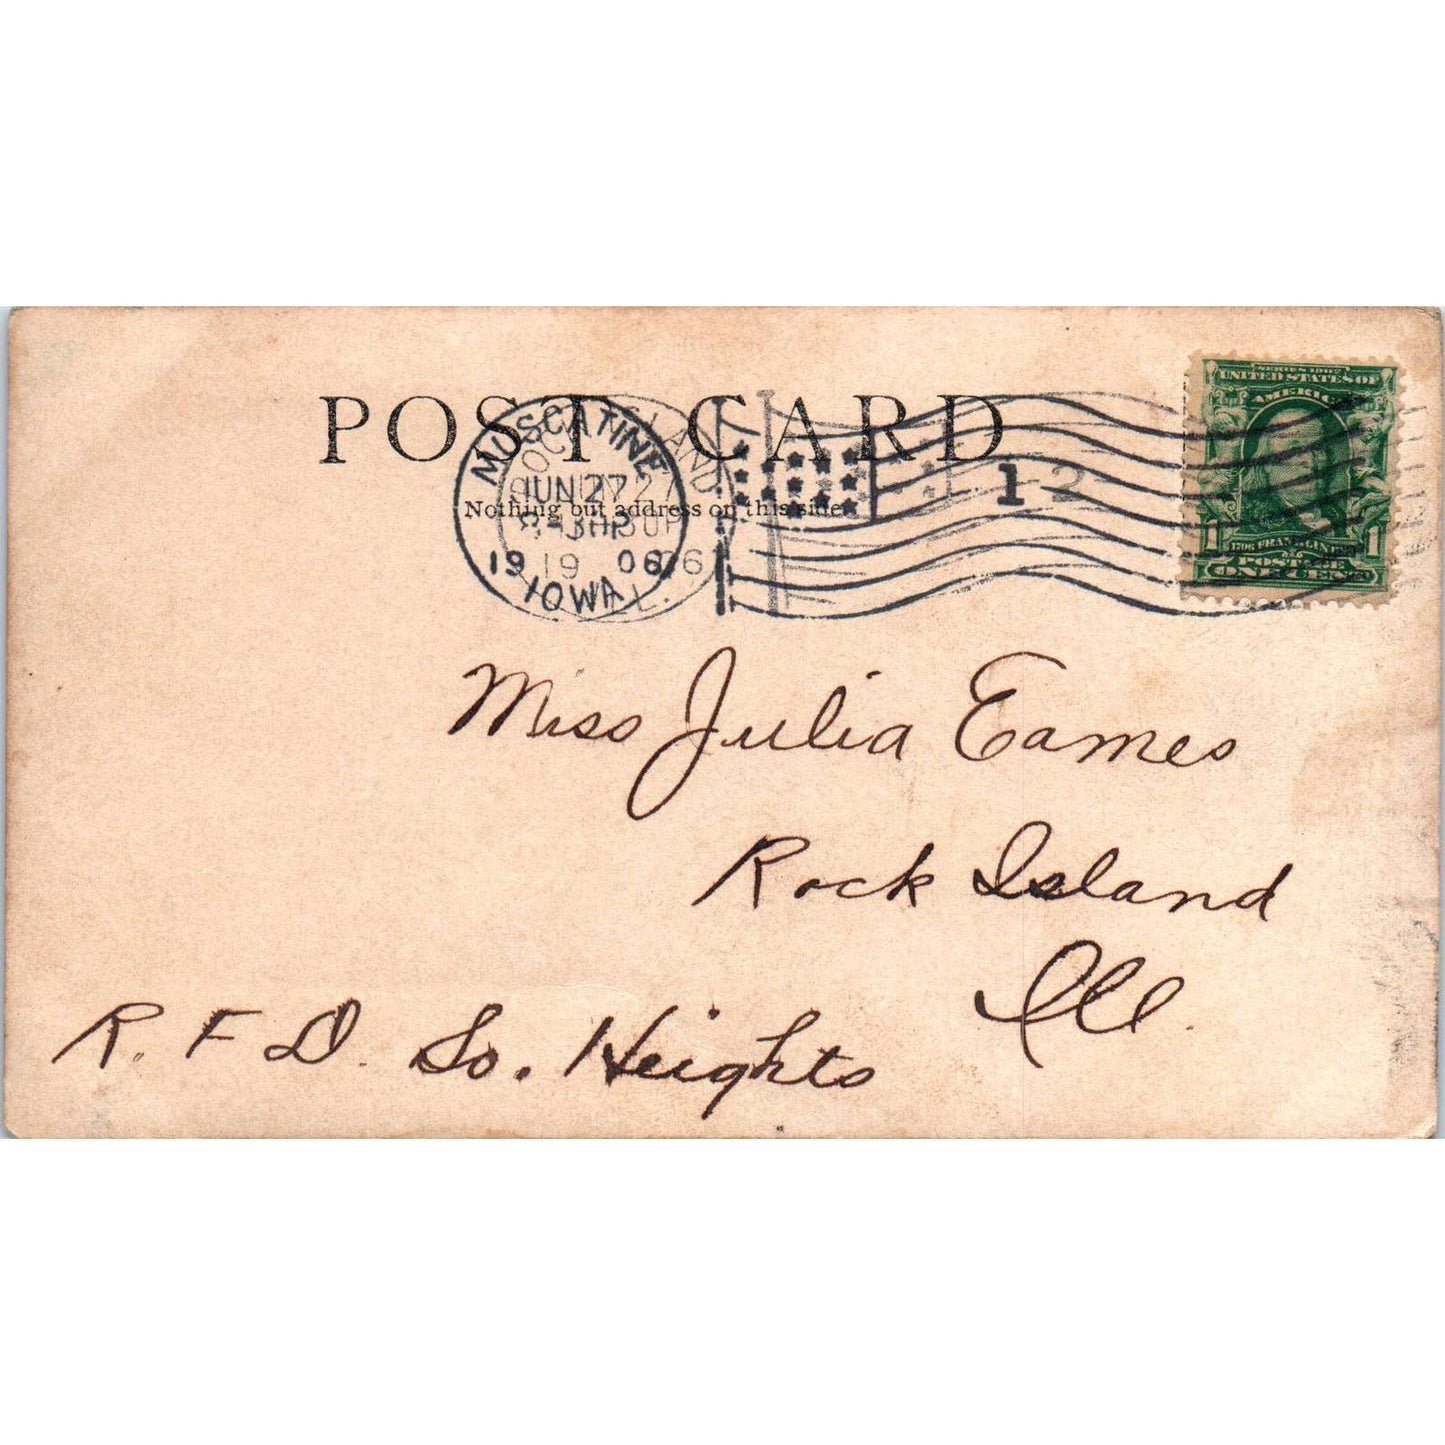 POST CARD
Nothing but address on this side.
MUSCATINE
JUN 27
1906
IOWA
ROCK ISLAND
JUN 27
1906
ILL.
1 2
SERIES 1902
UNITED STATES OF
AMERICA
1 1706 FRANKLIN 1790 1
POSTAGE
ONE CENT
Miss Julia Eames
Rock Island
Ill.
R. F D. So. Heights